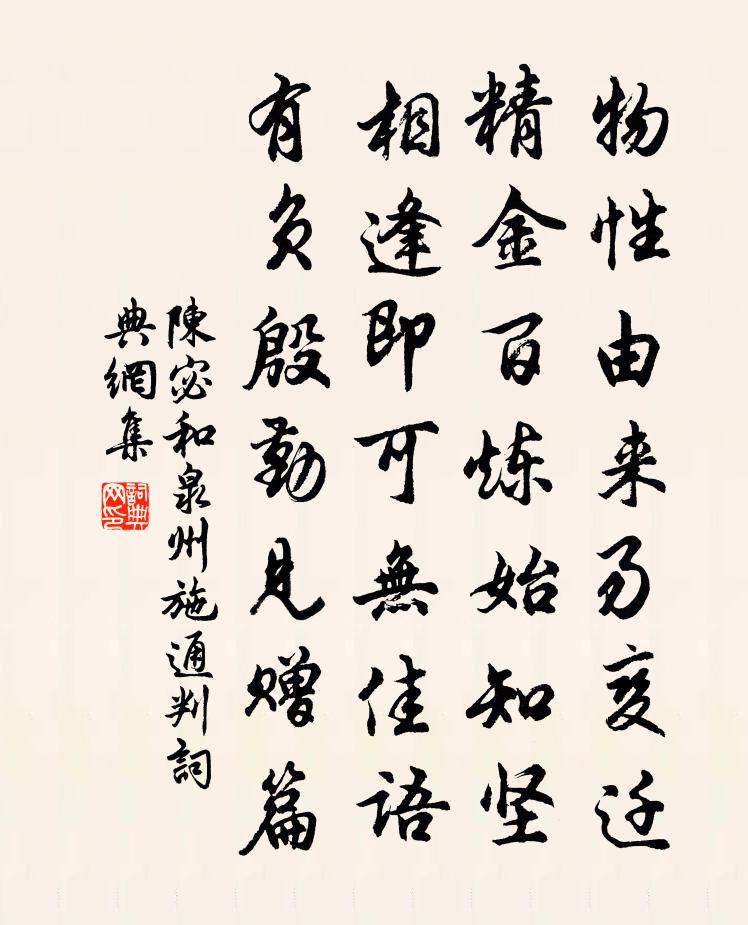 物性由来易变迁
精金百炼始知坚
相逢即可無佳語
有负殷勤見赠篇
陳宓和泉州施通判詞
典網集
詞典網印